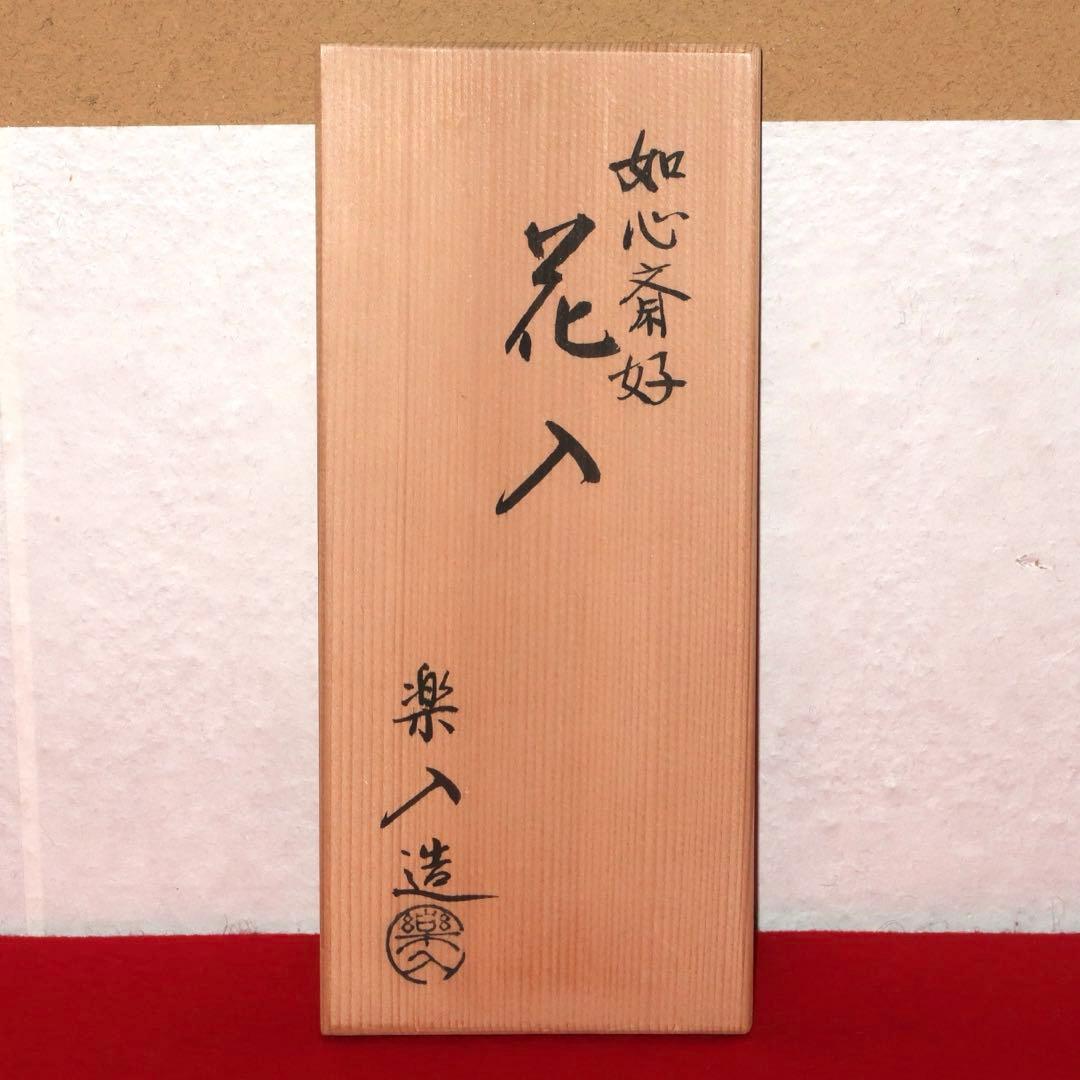 如心斎好
花入
楽入造
樂入